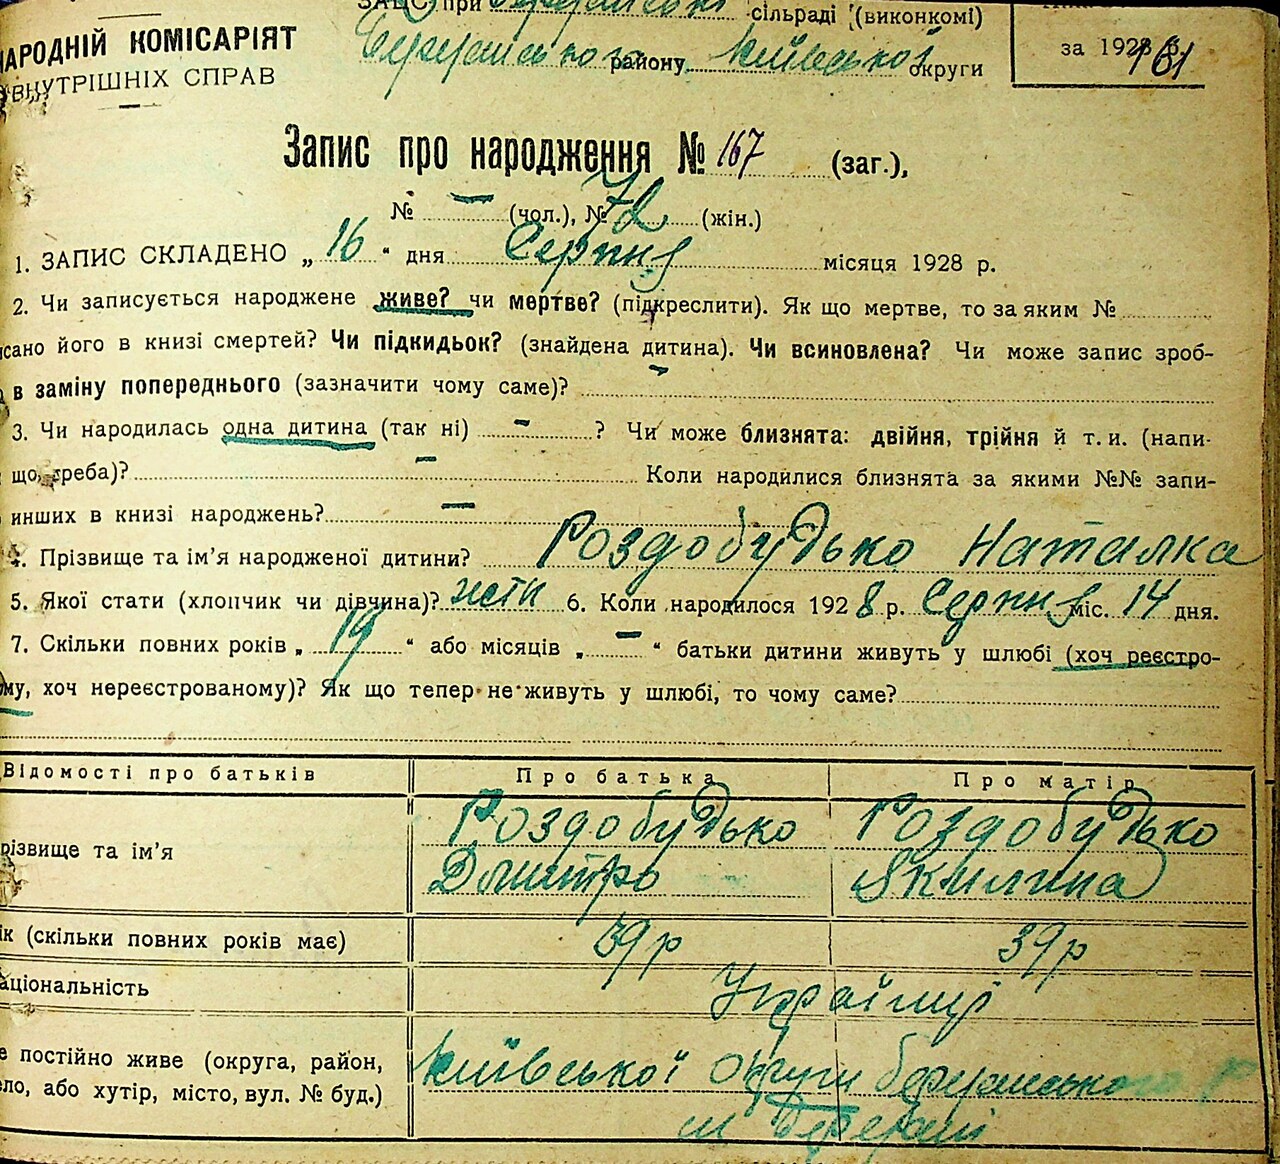 ЗАЦС при сільраді (виконкомі)
НАРОДНІЙ КОМІСАРІЯТ района Київської округи
за 1928 р. 161
ВНУТРІШНІХ СПРАВ
Запис про народження № 167 (заг.),
№ — (чол.), № 72 (жін.)
1. ЗАПИС СКЛАДЕНО „ 16 “ дня Серпня місяця 1928 р.
2. Чи записується народжене живе? чи мертве? (підкреслити). Як що мертве, то за яким №
исано його в книзі смертей? Чи підкидьок? (знайдена дитина). Чи всиновлена? Чи може запис зроб-
в заміну попереднього (зазначити чому саме)? —
3. Чи народилась одна дитина (так ні) — ? Чи може близнята: двійня, трійня й т. и. (напи-
що треба)? — Коли народилися близнята за якими №№ запи-
инших в книзі народжень? —
4. Прізвище та ім’я народженої дитини? Роздобудько Наталка
5. Якої стати (хлопчик чи дівчина)? жін 6. Коли народилося 1928 р. Серпня міс. 14 дня.
7. Скільки повних років „ 19 “ або місяців „ — “ батьки дитини живуть у шлюбі (хоч реєстро-
му, хоч нереєстрованому)? Як що тепер не живуть у шлюбі, то чому саме?
Відомості про батьків Про батька Про матір
різвище та ім’я Роздобудько Роздобудько
Дмитро Якилина
ік (скільки повних років має) 39 р 39 р
аціональність Українці
е постійно живе (округа, район, Київської округи
ело, або хутір, місто, вул. № буд.)